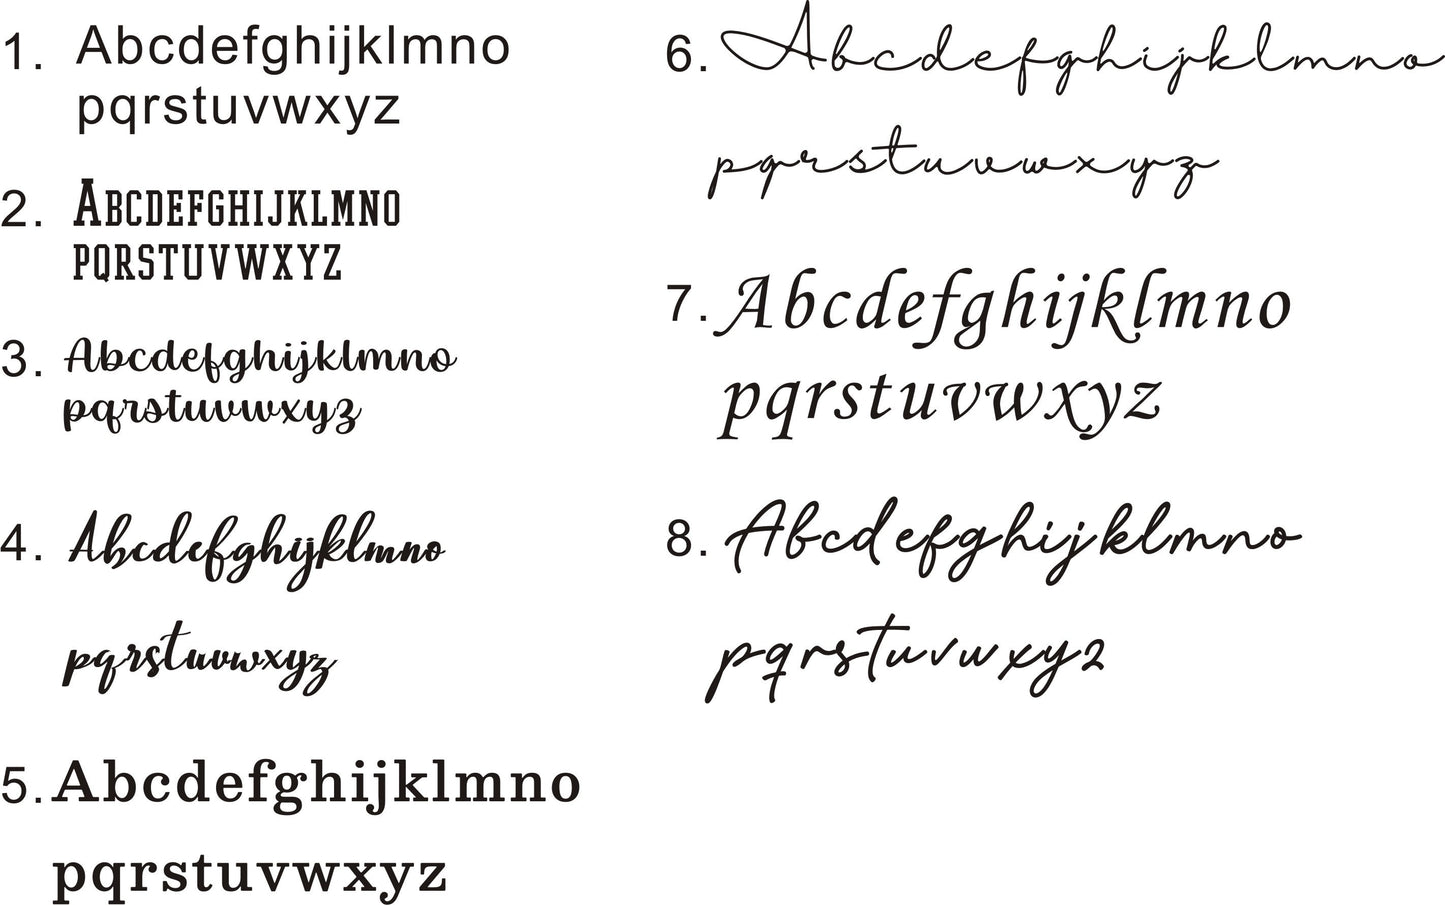 1. Abcdefghijklmno
pqrstuvwxyz
2. ABCDEFGHIJKLMNO
PQRSTUVWXYZ
3. Abcdefghijklmno
pqrstuvwxyz
4. Abcdefghijklmno
pqrstuvwxyz
5. Abcdefghijklmno
pqrstuvwxyz
6. Abcdefghijklmno
pqrstuvwxyz
7. Abcdefghijklmno
pqrstuvwxyz
8. Abcdefghijklmno
pqrstuvwxyz